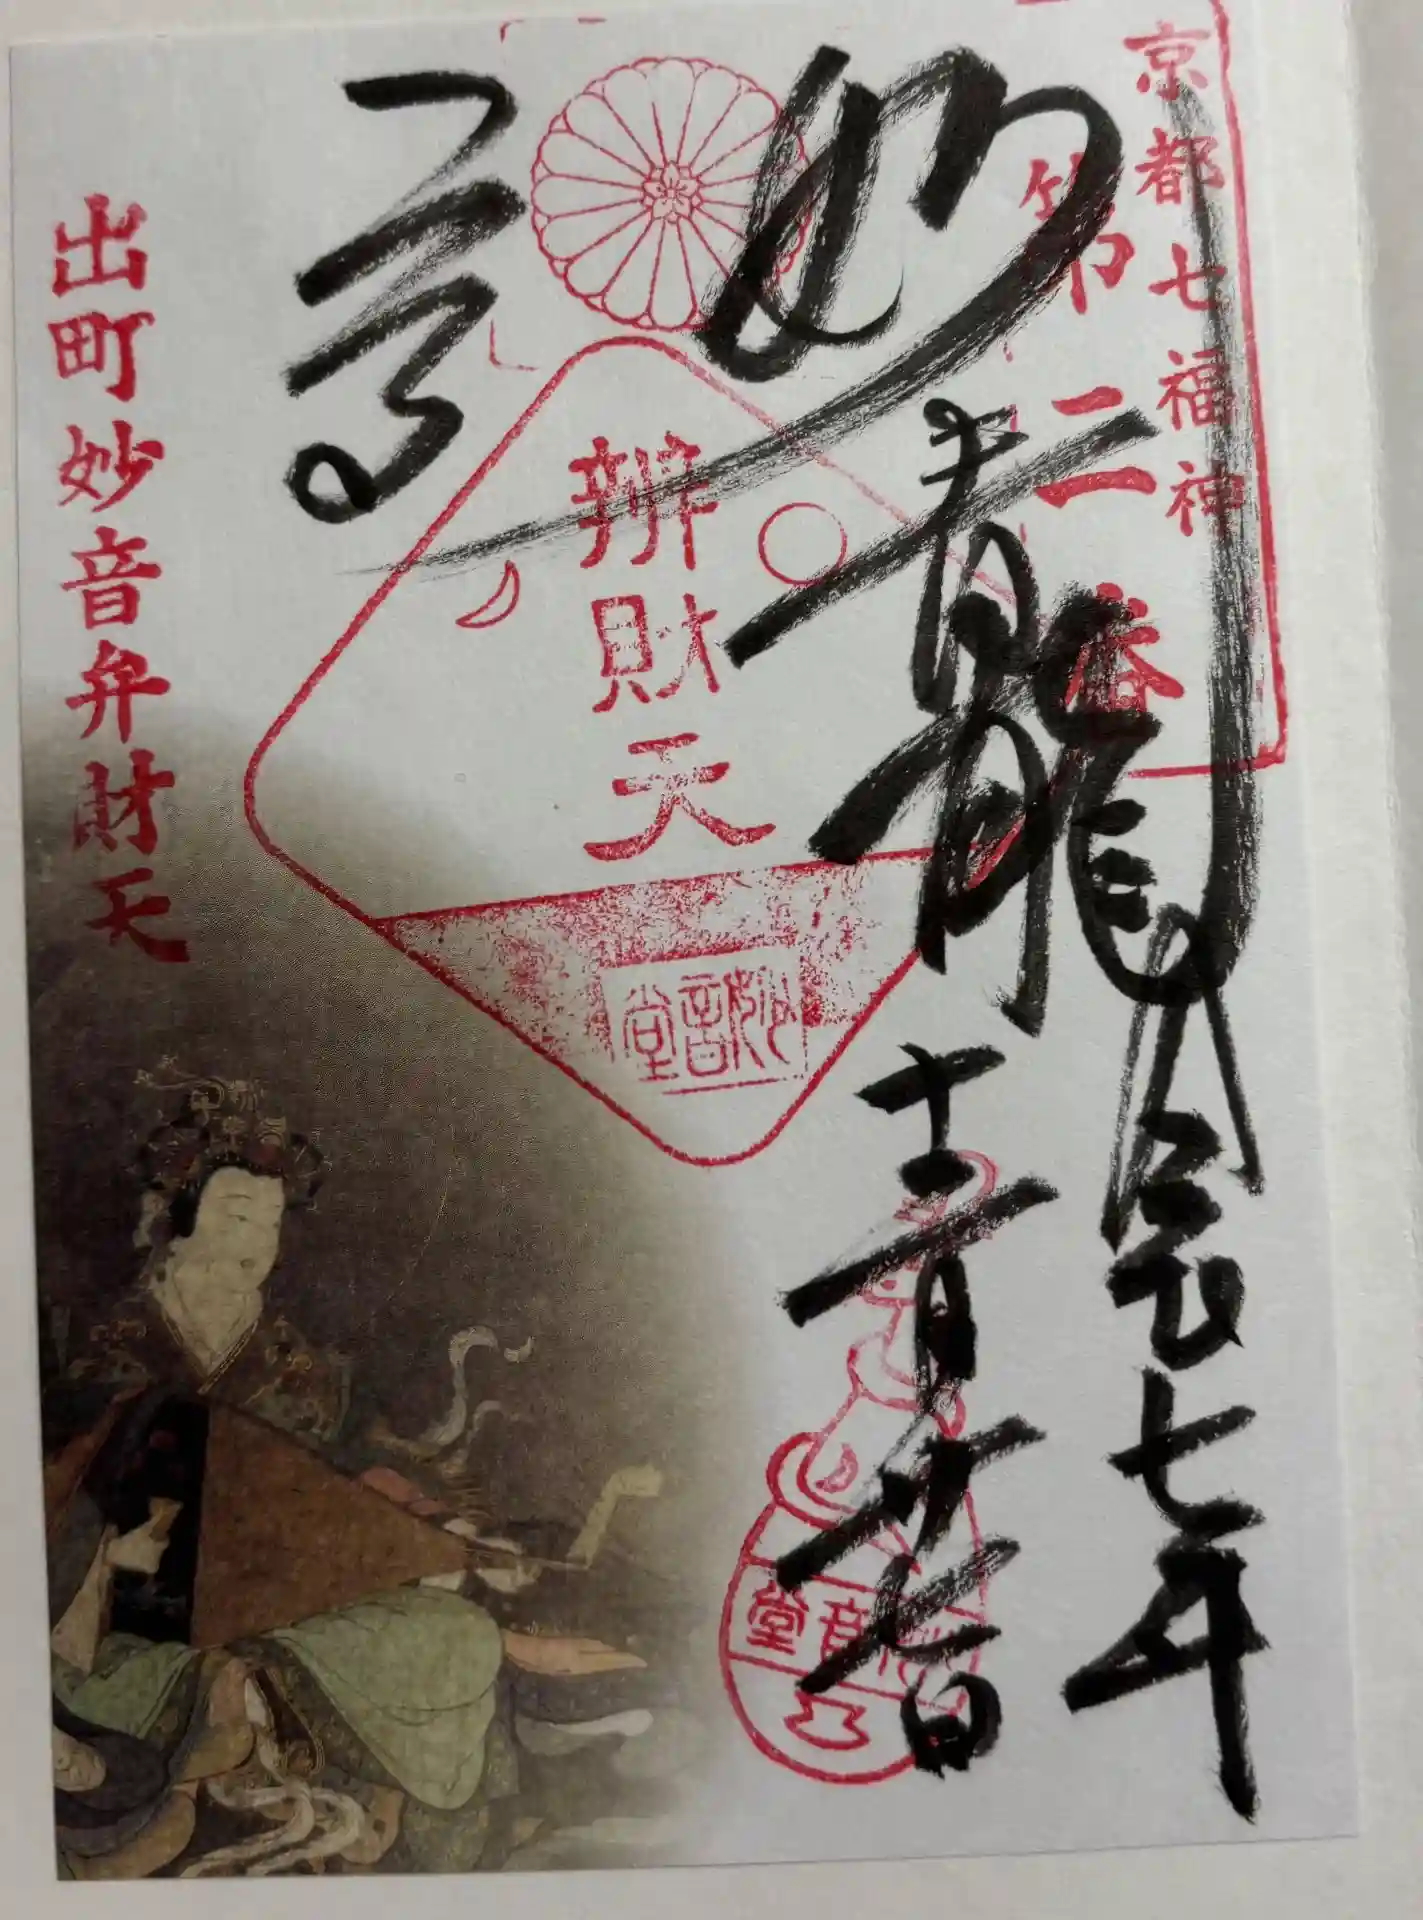 京都七福神
第二番
令和七年
妙音
青龍
十二月廿七日
辨財天
妙音堂
妙音堂
出町妙音弁財天